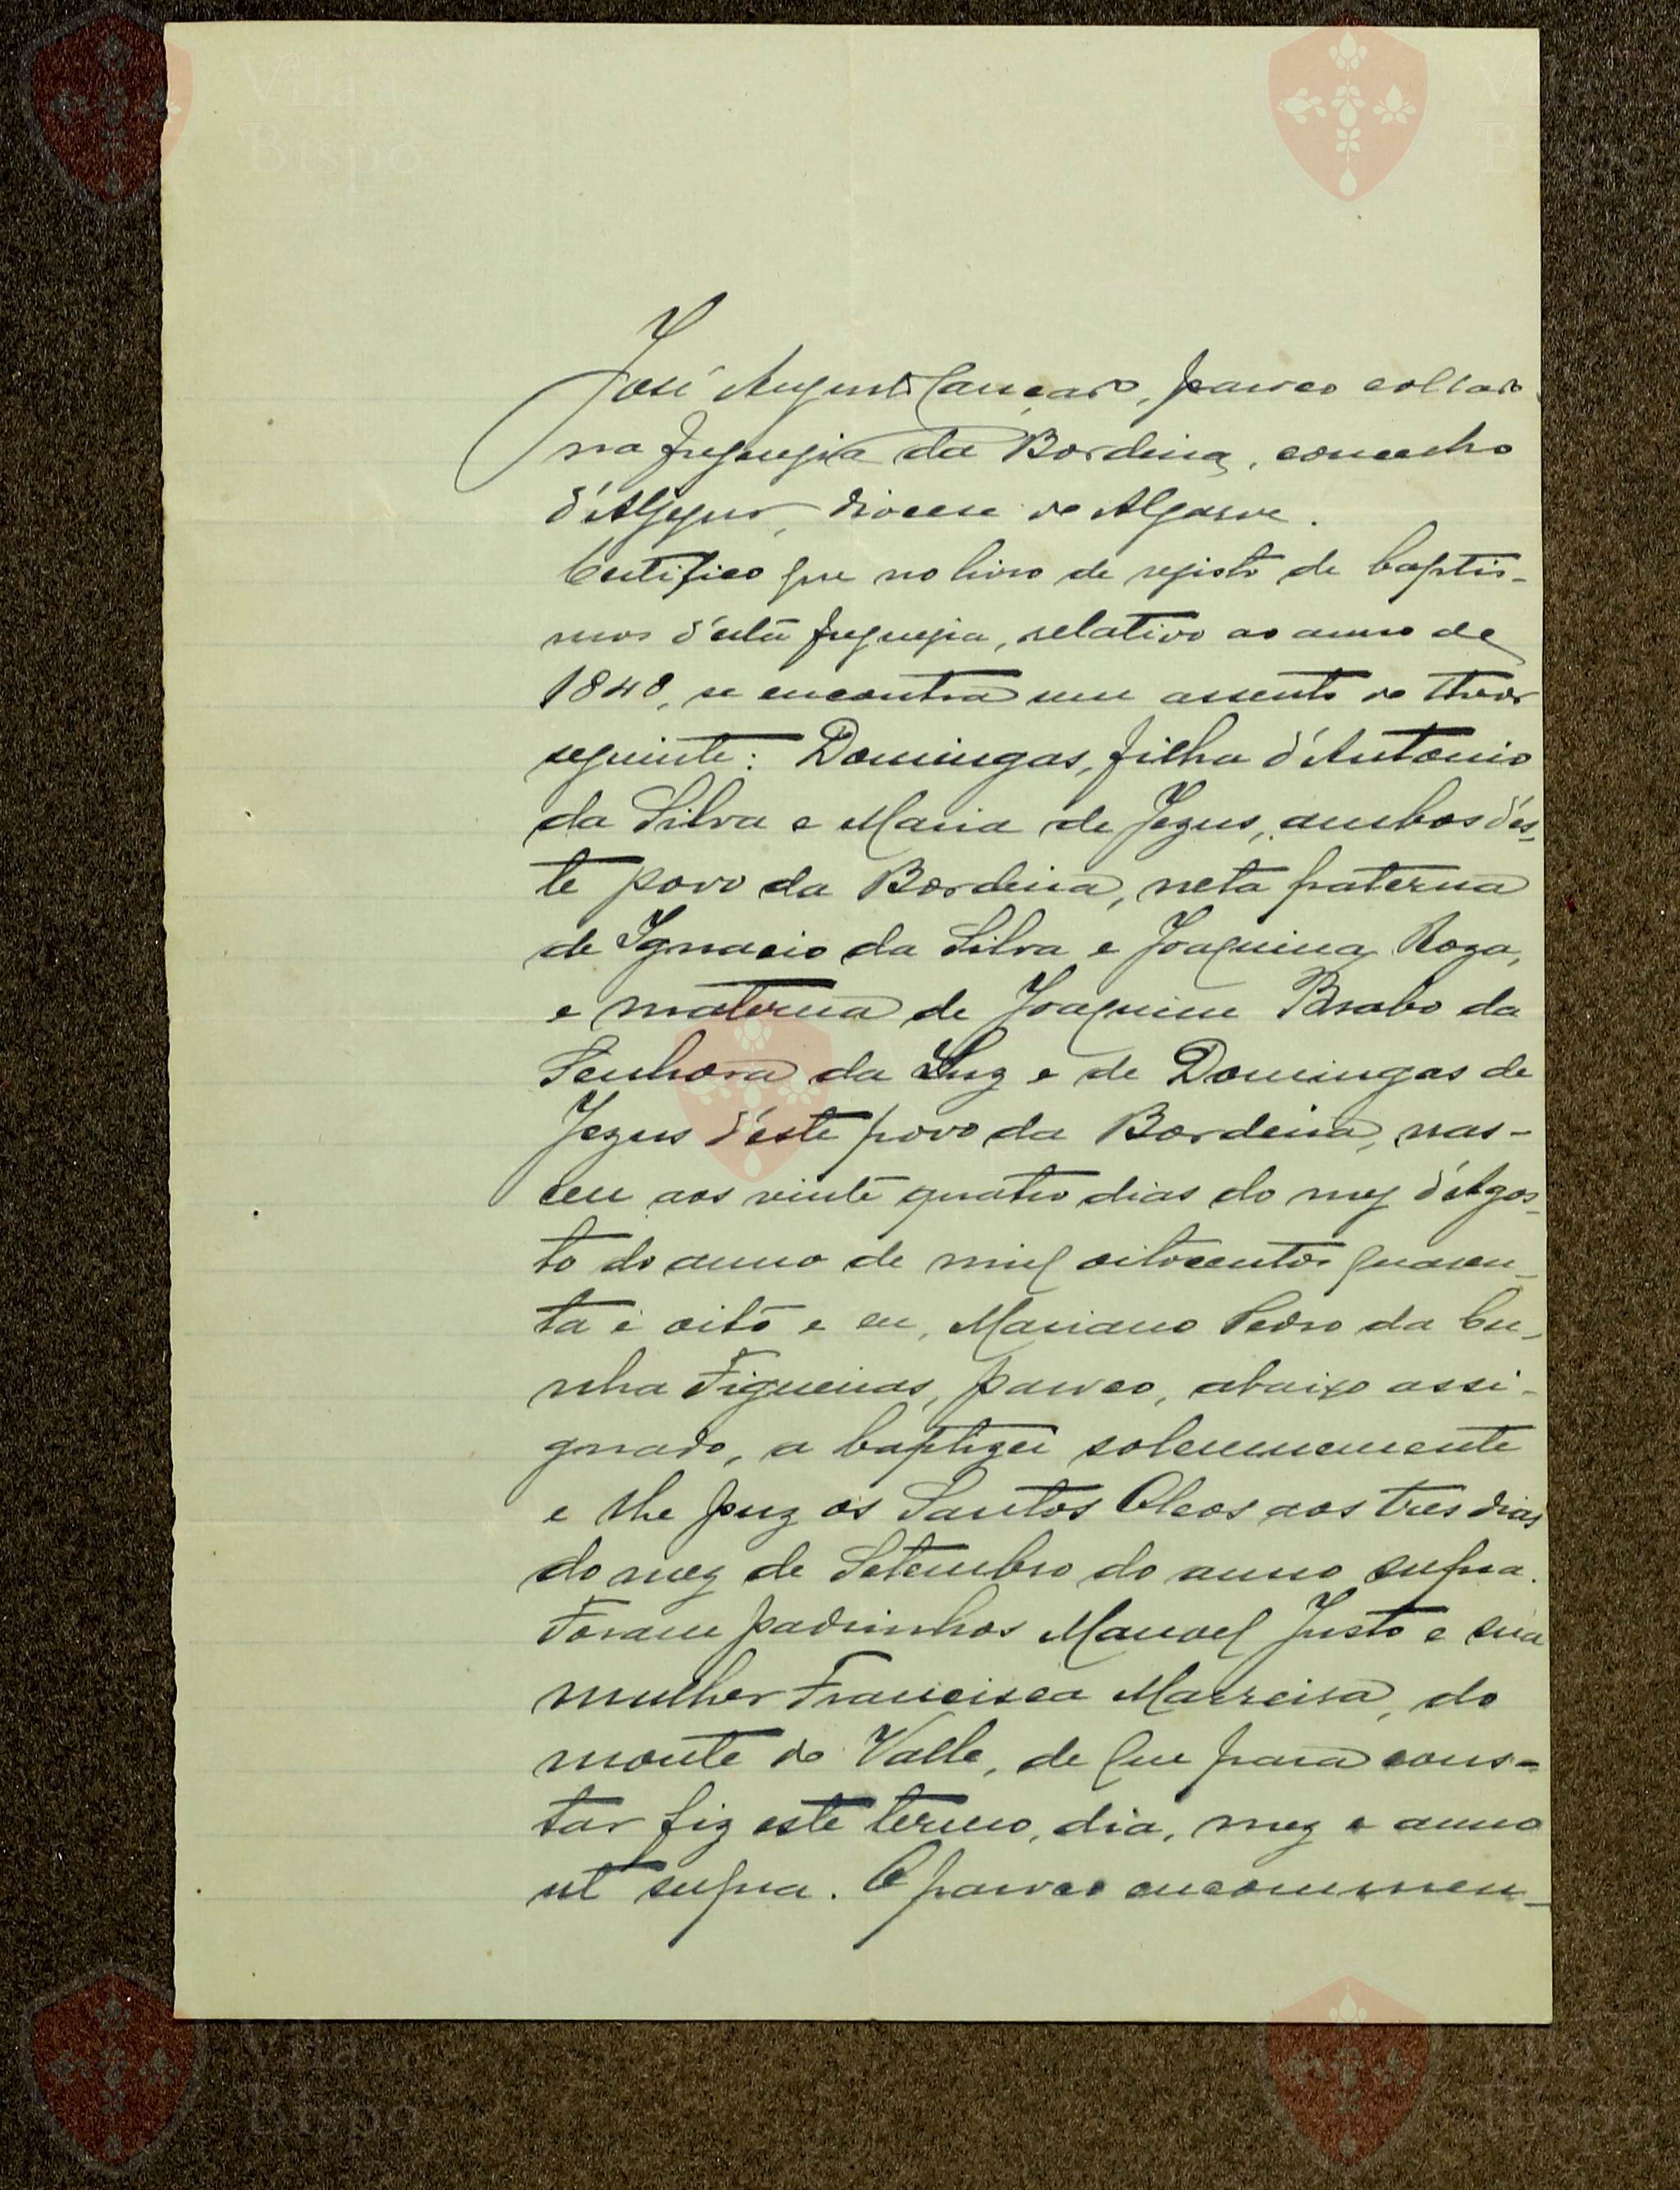 Vila do
Bispo
José Augusto Cançado, parocho collado
na freguezia da Bordeira, concelho
d'Aljezur, diocese do Algarve.
Certifico que no livro de registo de baptis-
mos d'esta freguezia, relativo ao anno de
1848, se encontra um assento do theor
seguinte: Domingas, filha d'Antonio
da Silva e Maria de Jezus, ambos d'es-
te povo da Bordeira, neta paterna
de Ignacio da Silva e Joaquina Roza,
e materna de Joaquim Brabo da
Senhora da Luz e de Domingas de
Jezus d'este povo da Bordeira, nas-
ceu aos vinte quatro dias do mez d'Agos-
to do anno de mil oitocentos quaren-
ta e oito e eu, Mariano Pedro da Cu-
nha Figueiras, paroco, abaixo assi-
gnado, a baptizei solemnemente
e lhe puz os Santos Oleos aos tres dias
do mez de Setembro do anno supra.
Foram padrinhos Manoel Justo e sua
mulher Francisca Marreira, do
monte do Valle, de que para cons-
tar fiz este termo, dia, mez e anno
ut supra. O paroco encommen-